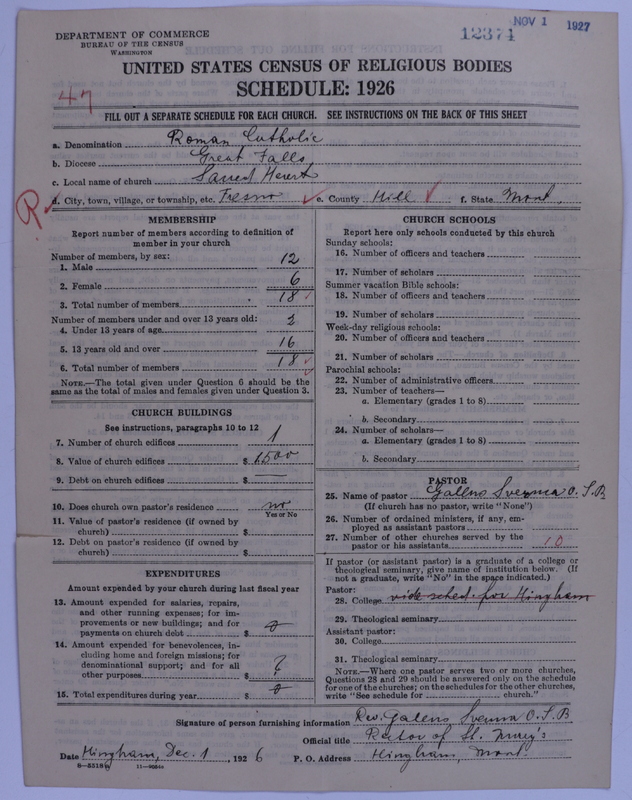 NOV 1 1927
12374
DEPARTMENT OF COMMERCE
BUREAU OF THE CENSUS
WASHINGTON
UNITED STATES CENSUS OF RELIGIOUS BODIES
SCHEDULE: 1926
47
FILL OUT A SEPARATE SCHEDULE FOR EACH CHURCH. SEE INSTRUCTIONS ON THE BACK OF THIS SHEET
a. Denomination Roman Catholic
b. Diocese Great Falls
c. Local name of church Sacred Heart
R
d. City, town, village, or township, etc. Fresno e. County Hill f. State Mont.
MEMBERSHIP
Report number of members according to definition of
member in your church
Number of members, by sex:
1. Male 12
2. Female 6
3. Total number of members 18
Number of members under and over 13 years old:
4. Under 13 years of age 2
5. 13 years old and over 16
6. Total number of members 18
NOTE.—The total given under Question 6 should be the
same as the total of males and females given under Question 3.
CHURCH BUILDINGS
See instructions, paragraphs 10 to 12
7. Number of church edifices 1
8. Value of church edifices $ 1500
9. Debt on church edifices $ —
10. Does church own pastor's residence no
Yes or No
11. Value of pastor's residence (if owned by
church) $
12. Debt on pastor's residence (if owned by
church) $
EXPENDITURES
Amount expended by your church during last fiscal year
13. Amount expended for salaries, repairs,
and other running expenses; for im-
provements or new buildings; and for
payments on church debt $ 0
14. Amount expended for benevolences, in-
cluding home and foreign missions; for
denominational support; and for all
other purposes $ ?
15. Total expenditures during year $ 0
CHURCH SCHOOLS
Report here only schools conducted by this church
Sunday schools:
16. Number of officers and teachers
17. Number of scholars
Summer vacation Bible schools:
18. Number of officers and teachers
19. Number of scholars
Week-day religious schools:
20. Number of officers and teachers
21. Number of scholars
Parochial schools:
22. Number of administrative officers
23. Number of teachers—
a. Elementary (grades 1 to 8)
b. Secondary
24. Number of scholars—
a. Elementary (grades 1 to 8)
b. Secondary
PASTOR
25. Name of pastor O.S.B
(If church has no pastor, write "None")
26. Number of ordained ministers, if any, em-
ployed as assistant pastors
27. Number of other churches served by the
pastor or his assistants 10
If pastor (or assistant pastor) is a graduate of a college or
theological seminary, give name of institution below. (If
not a graduate, write "No" in the space indicated.)
Pastor:
28. College vide sched. for Hingham
29. Theological seminary
Assistant pastor:
30. College
31. Theological seminary
NOTE.—Where one pastor serves two or more churches,
Questions 28 and 29 should be answered only on the schedule
for one of the churches; on the schedules for the other churches,
write "See schedule for church."
Signature of person furnishing information Rev. O.S.B
Official title Rector of St. Mary's
Date Hingham, Dec. 1, 1926 P. O. Address Hingham, Mont.